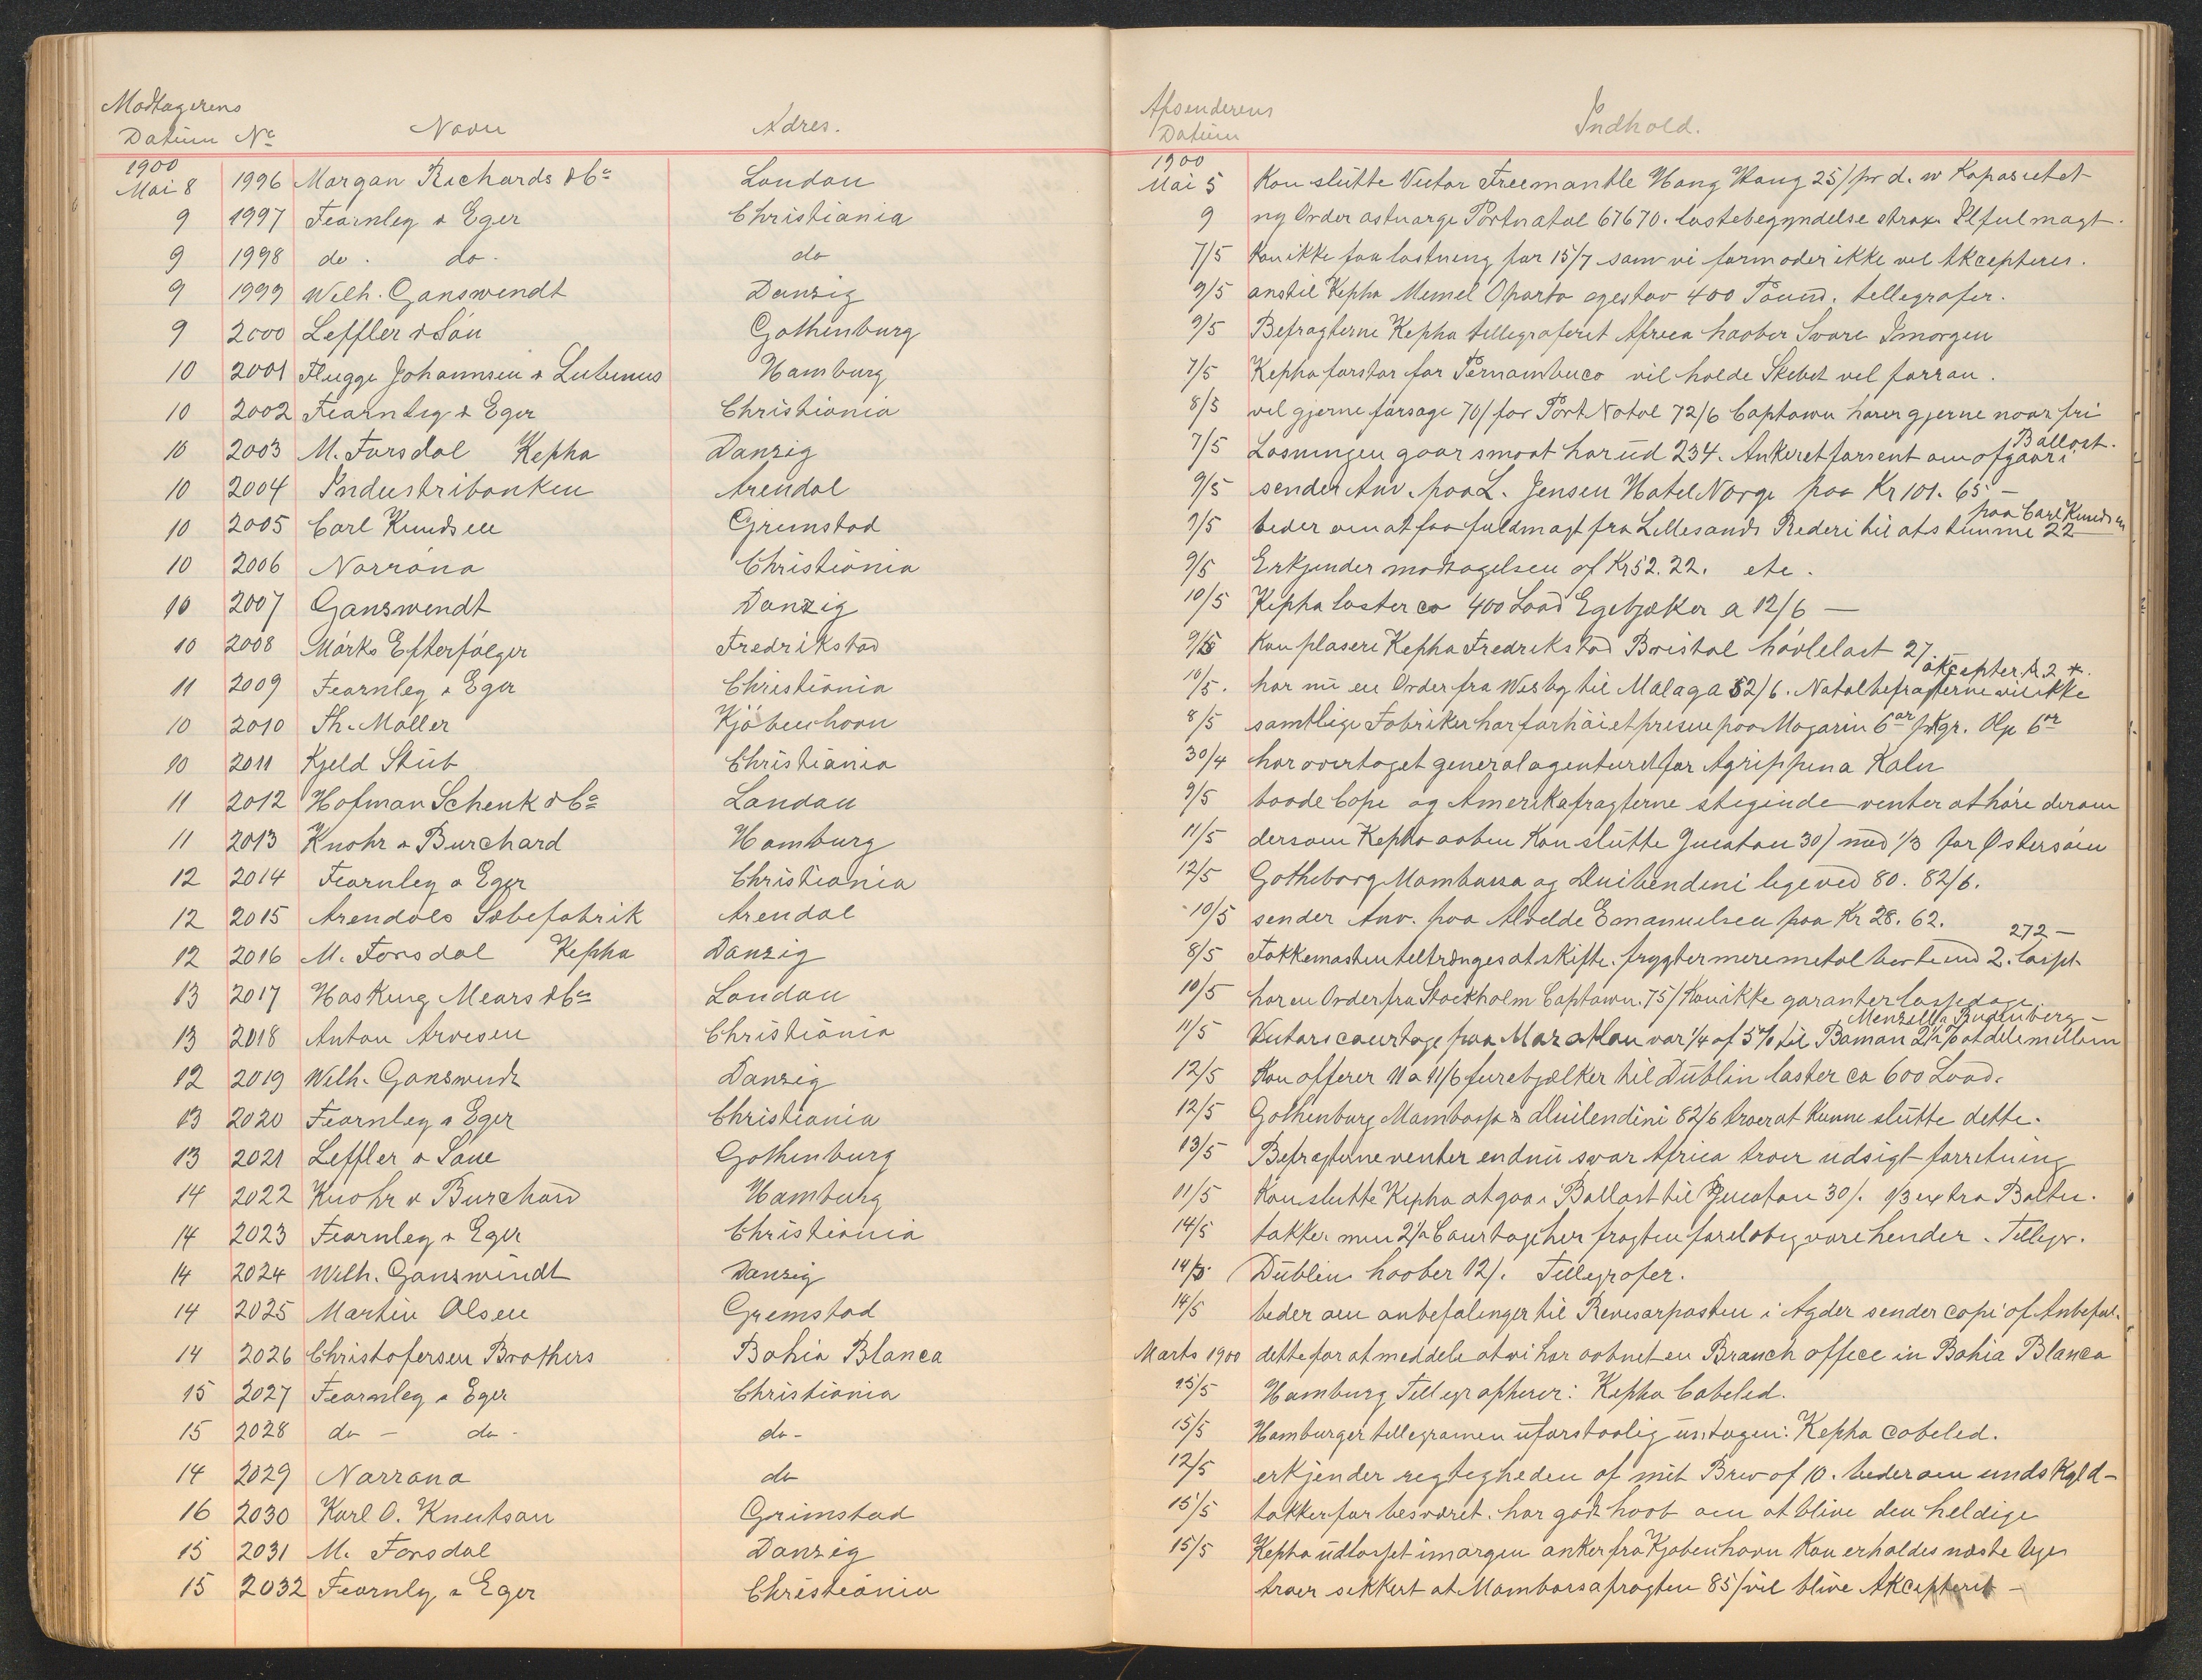 Modtagerens
Datum No Navn Adres.
1900
Mai 8 1996 Morgan Richards & Co London
9 1997 Fearnley & Eger Christiania
9 1998 do. do. do
9 1999 Welh. Ganswendt Danzig
9 2000 Leffler & Sön Gothenburg
10 2001 Flugge Johannsen & Lutimus Hamburg
10 2002 Fearnley & Eger Christiania
10 2003 M. Forsdal Kepha Danzig
10 2004 Industribanken Arendal
10 2005 Carl Knudsen Grimstad
10 2006 Norröna Christiania
10 2007 Ganswendt Danzig
10 2008 Mörks Efterfölger Fredrikstad
11 2009 Fearnley & Eger Christiania
10 2010 Th. Möller Kjöbenhavn
10 2011 Kjeld Stub Christiania
11 2012 Hofman Schenk & Co London
11 2013 Knohr & Burchard Hamburg
12 2014 Fearnley & Eger Christiania
12 2015 Arendals Sæbefabrik Arendal
12 2016 M. Forsdal Kepha Danzig
13 2017 Hasking Mears & Co London
13 2018 Anton Arvesen Christiania
12 2019 Welh. Ganswendt Danzig
13 2020 Fearnley & Eger Christiania
13 2021 Leffler & Söne Gothenburg
14 2022 Knohr & Burchard Hamburg
14 2023 Fearnley & Eger Christiania
14 2024 Welh. Ganswindt Danzig
14 2025 Martin Olsen Gremstad
14 2026 Christofersen Brothers Bahia Blanca
15 2027 Fearnley & Eger Christiania
15 2028 do - do - do -
14 2029 Norröna do
16 2030 Karl O. Knutson Grimstad
15 2031 M. Forsdal Danzig
15 2032 Fearnly & Eger Christiania
Afsenderens
Datum Indhold.
1900
Mai 5 Kan slutte Victor Freemantle Hong Kong 25/ pr d. w Kapasitet
9 ny Order Portnatal 67670. lastebegyndelse strax.
7/5 Kan ikke faa lastning for 15/7 som vi formoder ikke vel Akcepteres.
9/5 anstil Kepha Memel Oporto egestav 400 Pound. tellegrafer.
9/5 Befragterne Kepha tellegraferet Africa haaber Svare Imorgen
7/5 Kepha forslar for Pernambuco vil holde Skebet vel forran.
8/5 vel gjerne forsøge 70/ for Port Natal 72/6 Captown hører gjerne naar fri
7/5 Losningen gaar smaat har ud 234. Ankeret forsent om afgaar i Ballast.
9/5 sender Anv. paa L. Jensen Hotel Norge paa Kr 101. 65 -
paa Carl Knudsen
9/5 beder om at faa fuldmagt fra Lillesands Rederi til at stemme 22
9/5 Erkjender modtagelsen af Kr 52. 22. etc.
10/5 Kepha laster ca 400 Load Egebjælker a 12/6 -
9/5 Kan plasere Kepha Fredrikstad Bristol hövlelast 27
akcepter
10/5. har nu en Order fra Wisby til Malaga 52/6. Natalbefragterne vil ikke
8/5 samtlige Fabriker har forhöiet prisene paa Magarin 6 ör p Kgr. 6 ör
30/4 har overtaget generalagenturet for Agrippina Kaln
9/5 baade Cape og Amerikafragterne stiginde venter at höre derom
11/5 dersom Kepha aaben Kan slutte Jucatan 30/ med 1/3 for Östersöen
12/5 Gotheborg Mombassa og lige ved 80. 82/6.
10/5 sender Anv. paa Alvelde Emanuelsen paa Kr 28. 62.
272 -
8/5 Fokkemasten teltrænges at skifte. frygter mere metal
10/5 har en Order fra Stockholm Captown. 75/ Kan ikke garanter lossedage.
11/5 Victors courtage paa Mazatlan var 1/4 af 5% til 2½% at dele mellem
12/5 Kan offerer 11 a 11/6 furebjælker til Dublin laster ca 600 Load.
12/5 Gothenburg Mombassa & 82/6 troer at Kunne slutte dette.
13/5 Befragterne venter endnu svar Africa troer udsigt forretning
11/5 Kan slutte Kepha at gaa i Ballast til Jucatan 30/. 1/3 extra Balter.
14/5 takker men 2½ Courtage her fragten forelöbig vore hender. Tellegr.
14/5 Dublin haaber 12/. Tellegrafer.
14/5 beder om anbefalinger til Revisorposten i Agder sender copi af Anbefal.
Marts 1900 dette for at meddele at vi har aabnet en Branch office in Bahia Blanca
15/5 Hamburg Tellegrapherer: Kepha Cabeled.
15/5 Hamburger tellegramen uforstaalig untagen: Kepha cabeled.
12/5 erkjender regtigheden af mit Brev af 10. beder om undskyld-
15/5 takker for besværet. har godt haab om at blive den heldige
15/5 Kepha udlosset imorgen anker fra Kjøbenhavn Kan erholdes næste uge
troer sikkert at Mombassafragten 85/ vil blive Akcepteret -